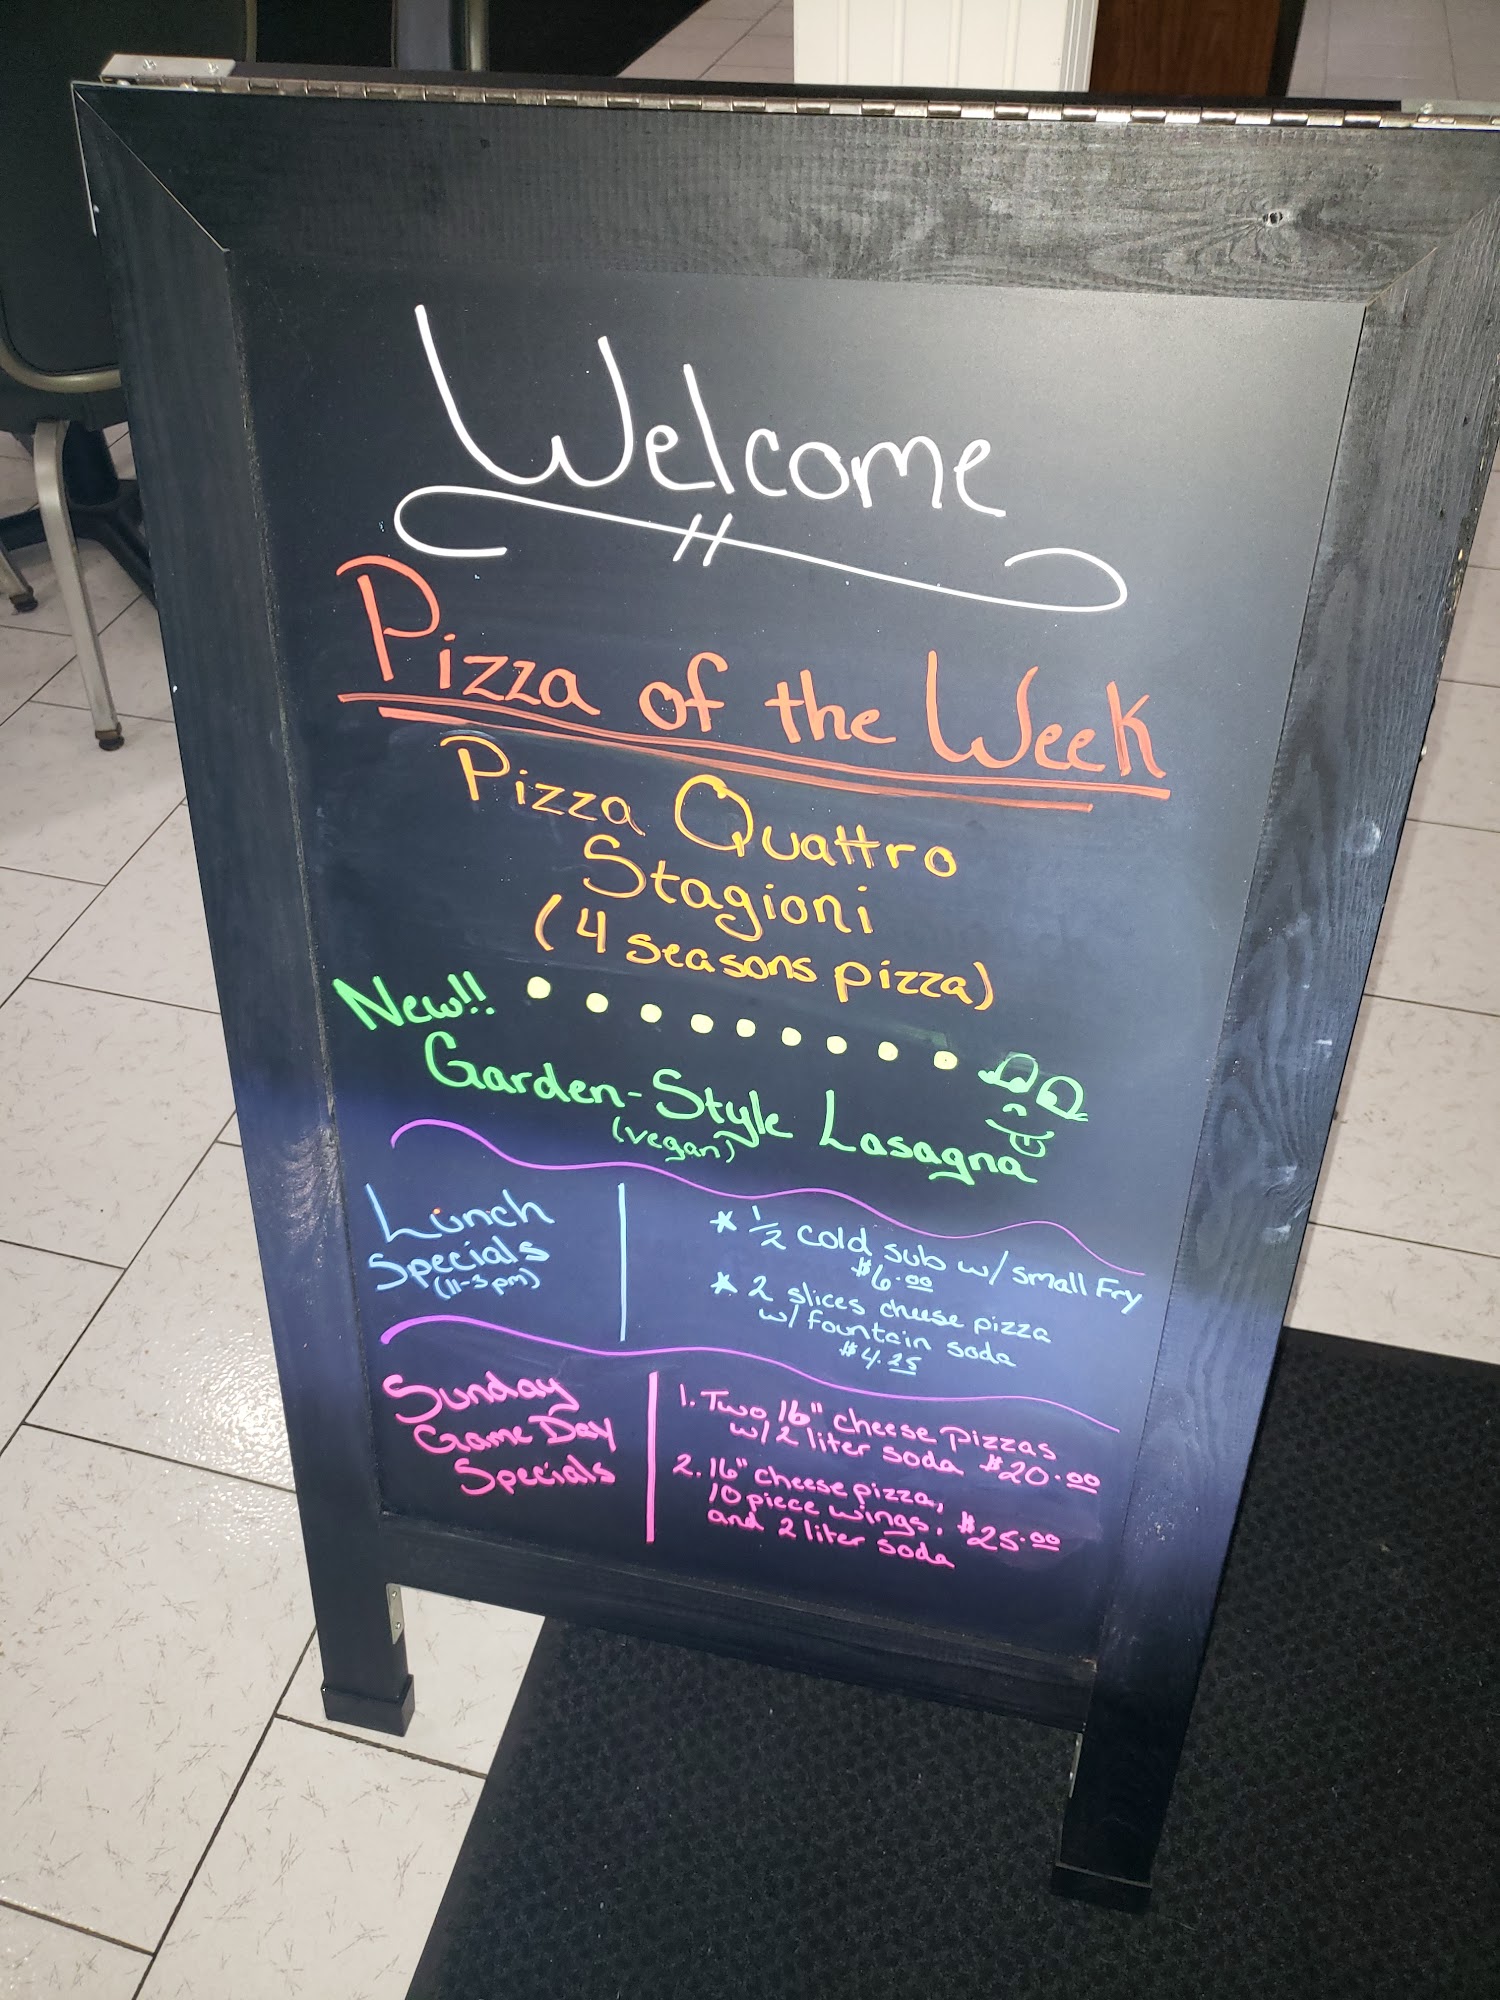 Welcome
Pizza of the Week
Pizza Quattro
Stagioni
(4 seasons pizza)
New!!
Garden-Style Lasagna
(vegan)
Lunch
Specials
(11-3pm)
* 1/2 cold sub w/ small Fry
$6.00
* 2 slices cheese pizza
w/ fountain soda
$4.25
Sunday
Game Day
Specials
1. Two 16" cheese pizzas
w/ 2 liter soda $20.00
2. 16" cheese pizza,
10 piece wings, $25.00
and 2 liter soda